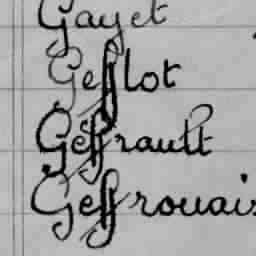 Gayet
Geflot
Geffrault
Geffrouais